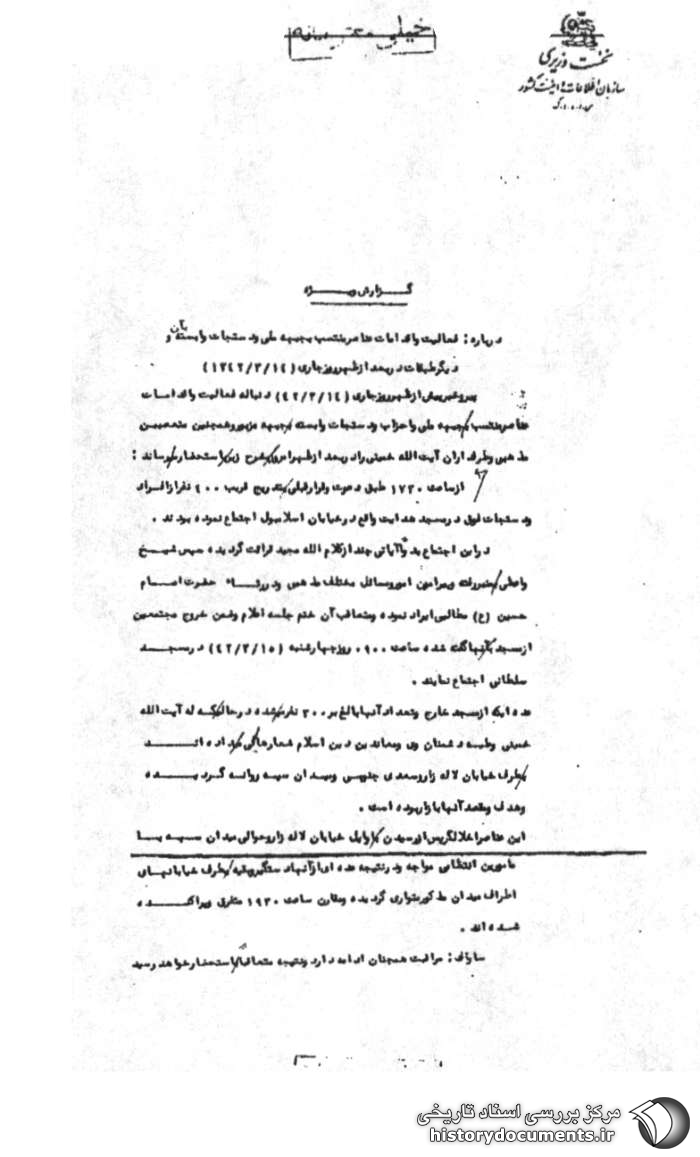 خیلی محرمانه
نخست وزیری
سازمان اطلاعات و امنیت کشور
س.ا.و.ا.ک
گـــزارش ویـــژه
درباره: فعالیت واقدامات عناصر منتسب بجبهه ملی ودستجات وابسته بآن و
دیگر طبقات در بعد از ظهر روز جاری (۱۳۴۲/۳/۱۴)
پیروخبر پیش از ظهر روز جاری (۴۲/۳/۱۴) دنباله فعالیت واقدامات
عناصر منتسب بجبهه ملی واحزاب ودستجات وابسته بجبهه مزبور وهمچنین متعصبین
مذهبی وطرفداران آیت الله خمینی رادر بعد از ظهر امروز بشرح زیر باستحضار میرساند:
از ساعت ۱۷۳۰ طبق دعوت وقرار قبلی بتدریج قریب ۲۰۰ نفر از افراد
ودستجات فوق در مسجد هدایت واقع در خیابان اسلامبول اجتماع نموده بودند.
در این اجتماع بدواً آیاتی چند از کلام الله مجید قرائت گردیده سپس شیخ
واعظی بمنبر رفته وپیرامون امور ومسائل مختلف مذهبی ودر رثاء حضرت امام
حسین (ع) مطالبی ایراد نموده ومتعاقب آن ختم جلسه اعلام وضمن خروج مجتمعین
از مسجد بآنها گفته شده ساعت ۰۹۰۰ روز چهارشنبه (۴۲/۳/۱۵) در مسجد
سلطانی اجتماع نمایند.
عده ایکه از مسجد خارج وتعداد آنها بالغ بر ۳۰۰ نفر میشده در حالیکه له آیت الله
خمینی وعلیه دشمنان وی ومعاندین دین اسلام شعارهائی میداده اند
بطرف خیابان لاله زار وسعدی جنوبی ومیدان سپه روانه گردیده
وهدف ومقصد آنها بازار بوده است.
این عناصر اخلالگر پس از رسیدن باوایل خیابان لاله زار وحوالی میدان سپه بـا
مامورین انتظامی مواجه ودر نتیجه عده ای از آنها دستگیر وبقیه بطرف خیابانهای
اطراف میدان مذکور متواری گردیده ومقارن ساعت ۱۹۳۰ متفرق وپراکنده
شده اند.
ساواک: مراقبت همچنان ادامه دارد ونتیجه متعاقباً باستحضار خواهد رسید
مرکز بررسی اسناد تاریخی
historydocuments.ir